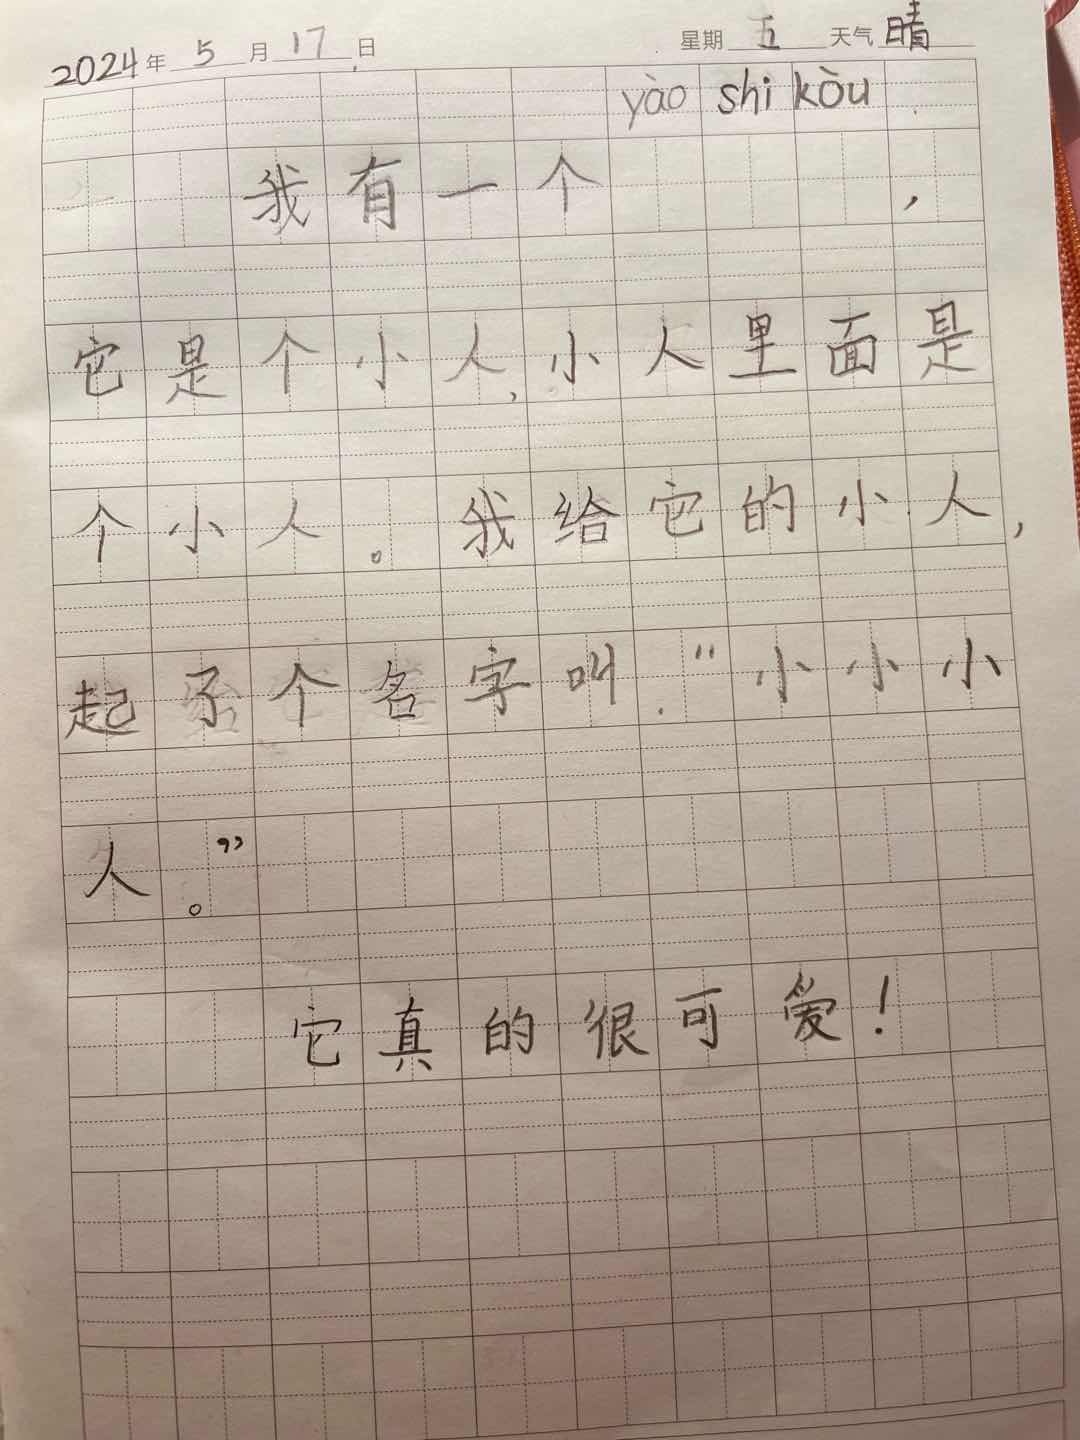 2024年 5 月 17 日 星期 五 天气 晴
yào shi kòu
我有一个 ，
它是个小人，小人里面是
个小人。我给它的小人，
起了个名字叫．“小小小
人。”
它真的很可爱！